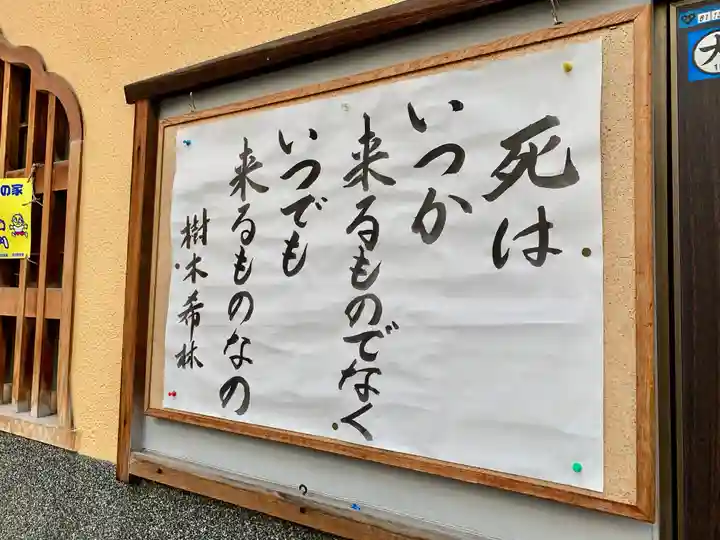 死は
いつか
来るものでなく
いつでも
来るものなの
樹木希林
の家